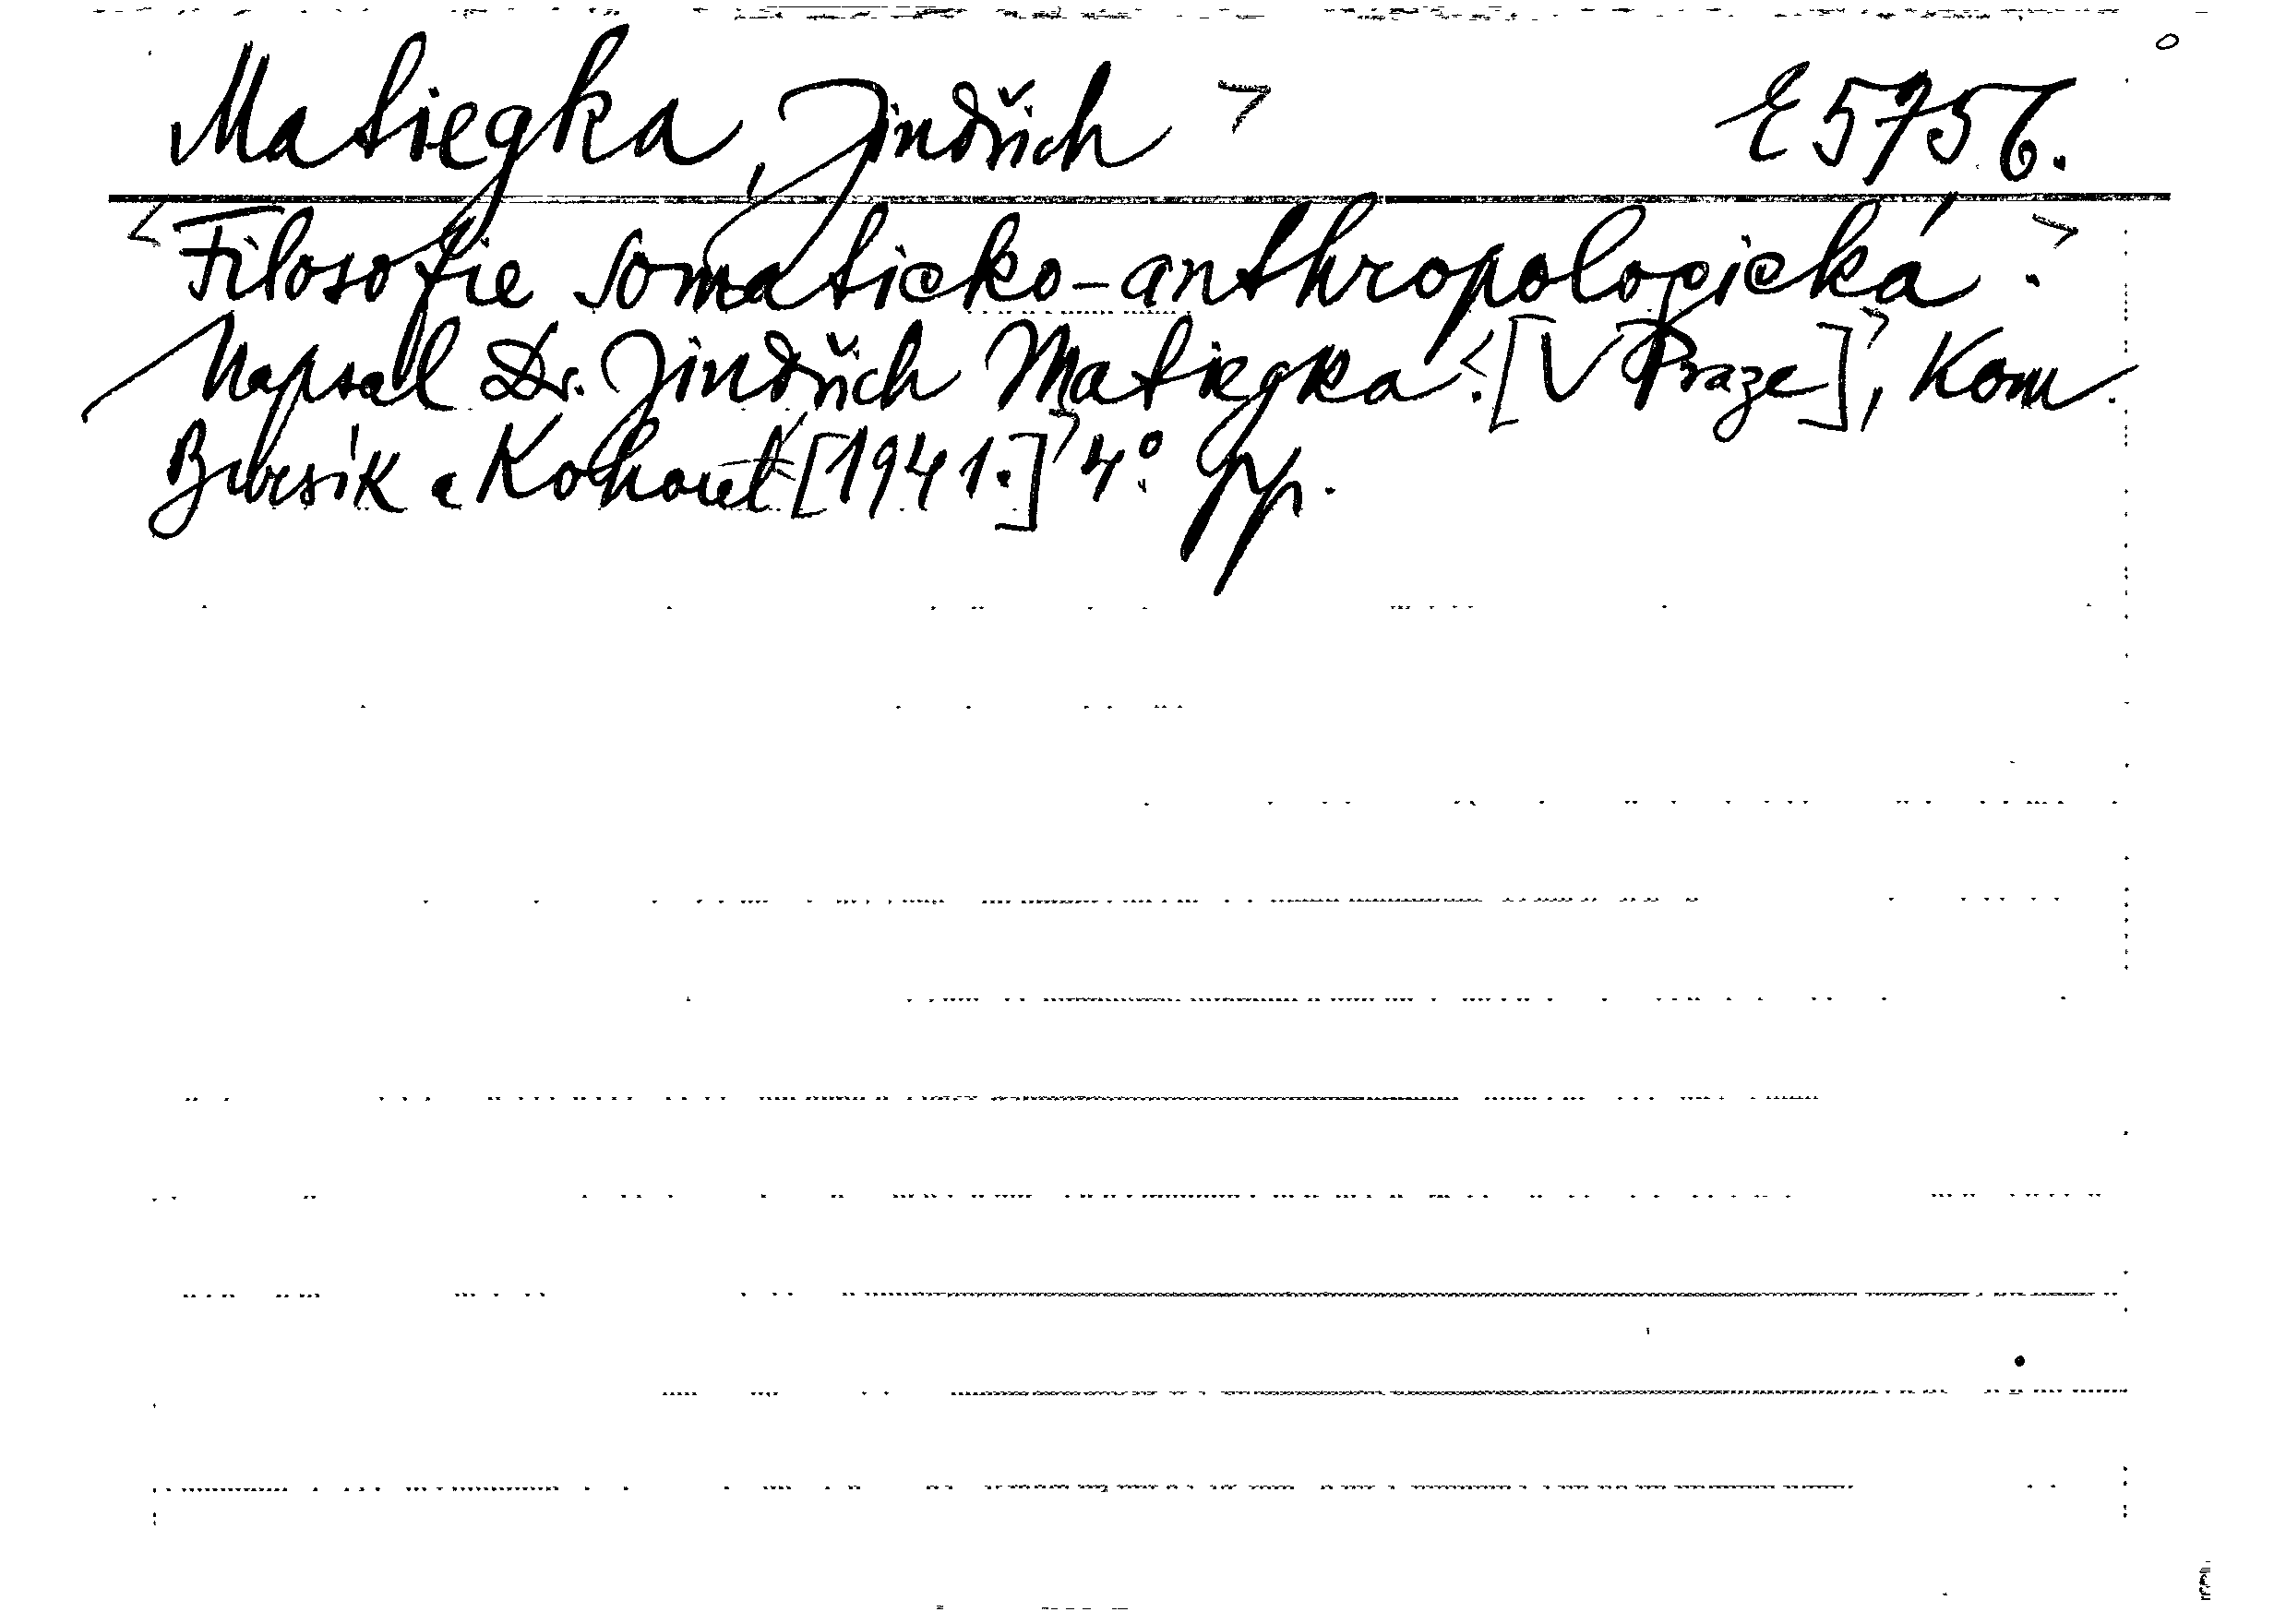 Matiegka, Jindřich > E 5756.
<Filosofie somaticko-anthropologická.>
Napsal Dr. Jindřich Matiegka.<[V Praze],> Kom.
Bursík a Kohout [1941.]> 4°.